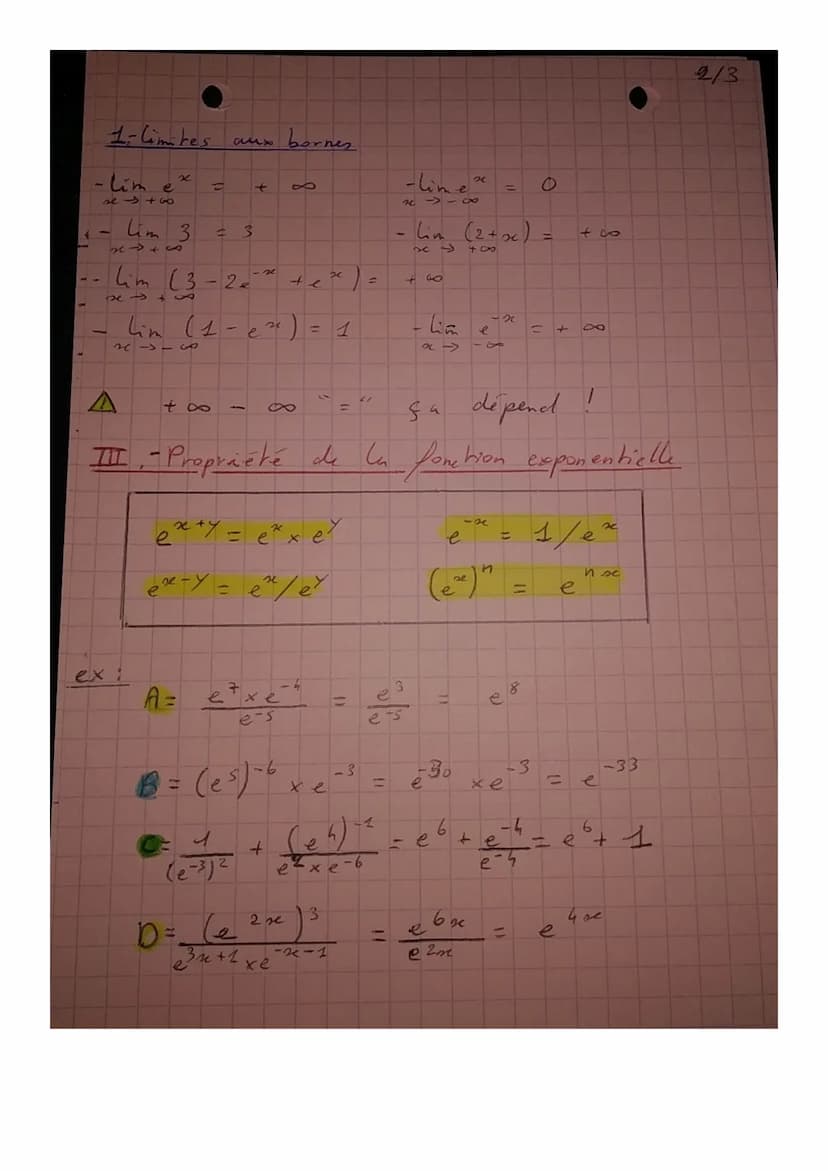 2/3
1-limites aux bornes
- lim e^x = + ∞ - lim e^x = 0
x → +∞ x → -∞
- lim 3 = 3 - lim (2+x) = +∞
x → +∞ x → +∞
- lim (3 - 2e^-x + e^x) = +∞
x → +∞
- lim (1 - e^x) = 1 - lim e^-x = + ∞
x → -∞ x → -∞
⚠ +∞ - ∞ "=" ça dépend !
III.- Propriété de la fonction exponentielle
e^x+y = e^x × e^y e^-x = 1/e^x
e^x-y = e^x/e^y (e^x)^n = e^nx
ex :
A = (e^7 × e^-4)/(e^-5) = e^3/e^-5 = e^8
B = (e^5)^-6 × e^-3 = e^-30 × e^-3 = e^-33
C = 1/(e^-3)^2 + (e^4)^-1/(e^2 × e^-6) = e^6 + e^-4/e^-4 = e^6 + 1
D = (e^2x)^3/(e^3x+1 × e^-x-1) = e^6x/e^2x = e^4x